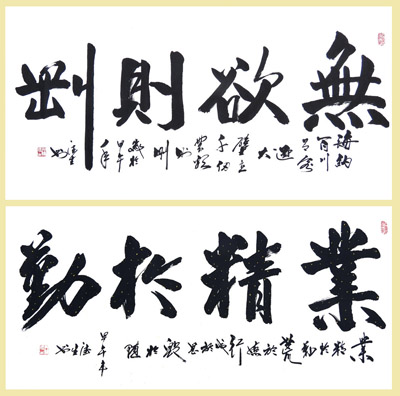 無欲則剛
海納百川有容迺大壁立千仞無欲則剛
甲午年
業精於勤
業精於勤荒於嬉行成於思毀於隨
甲午年